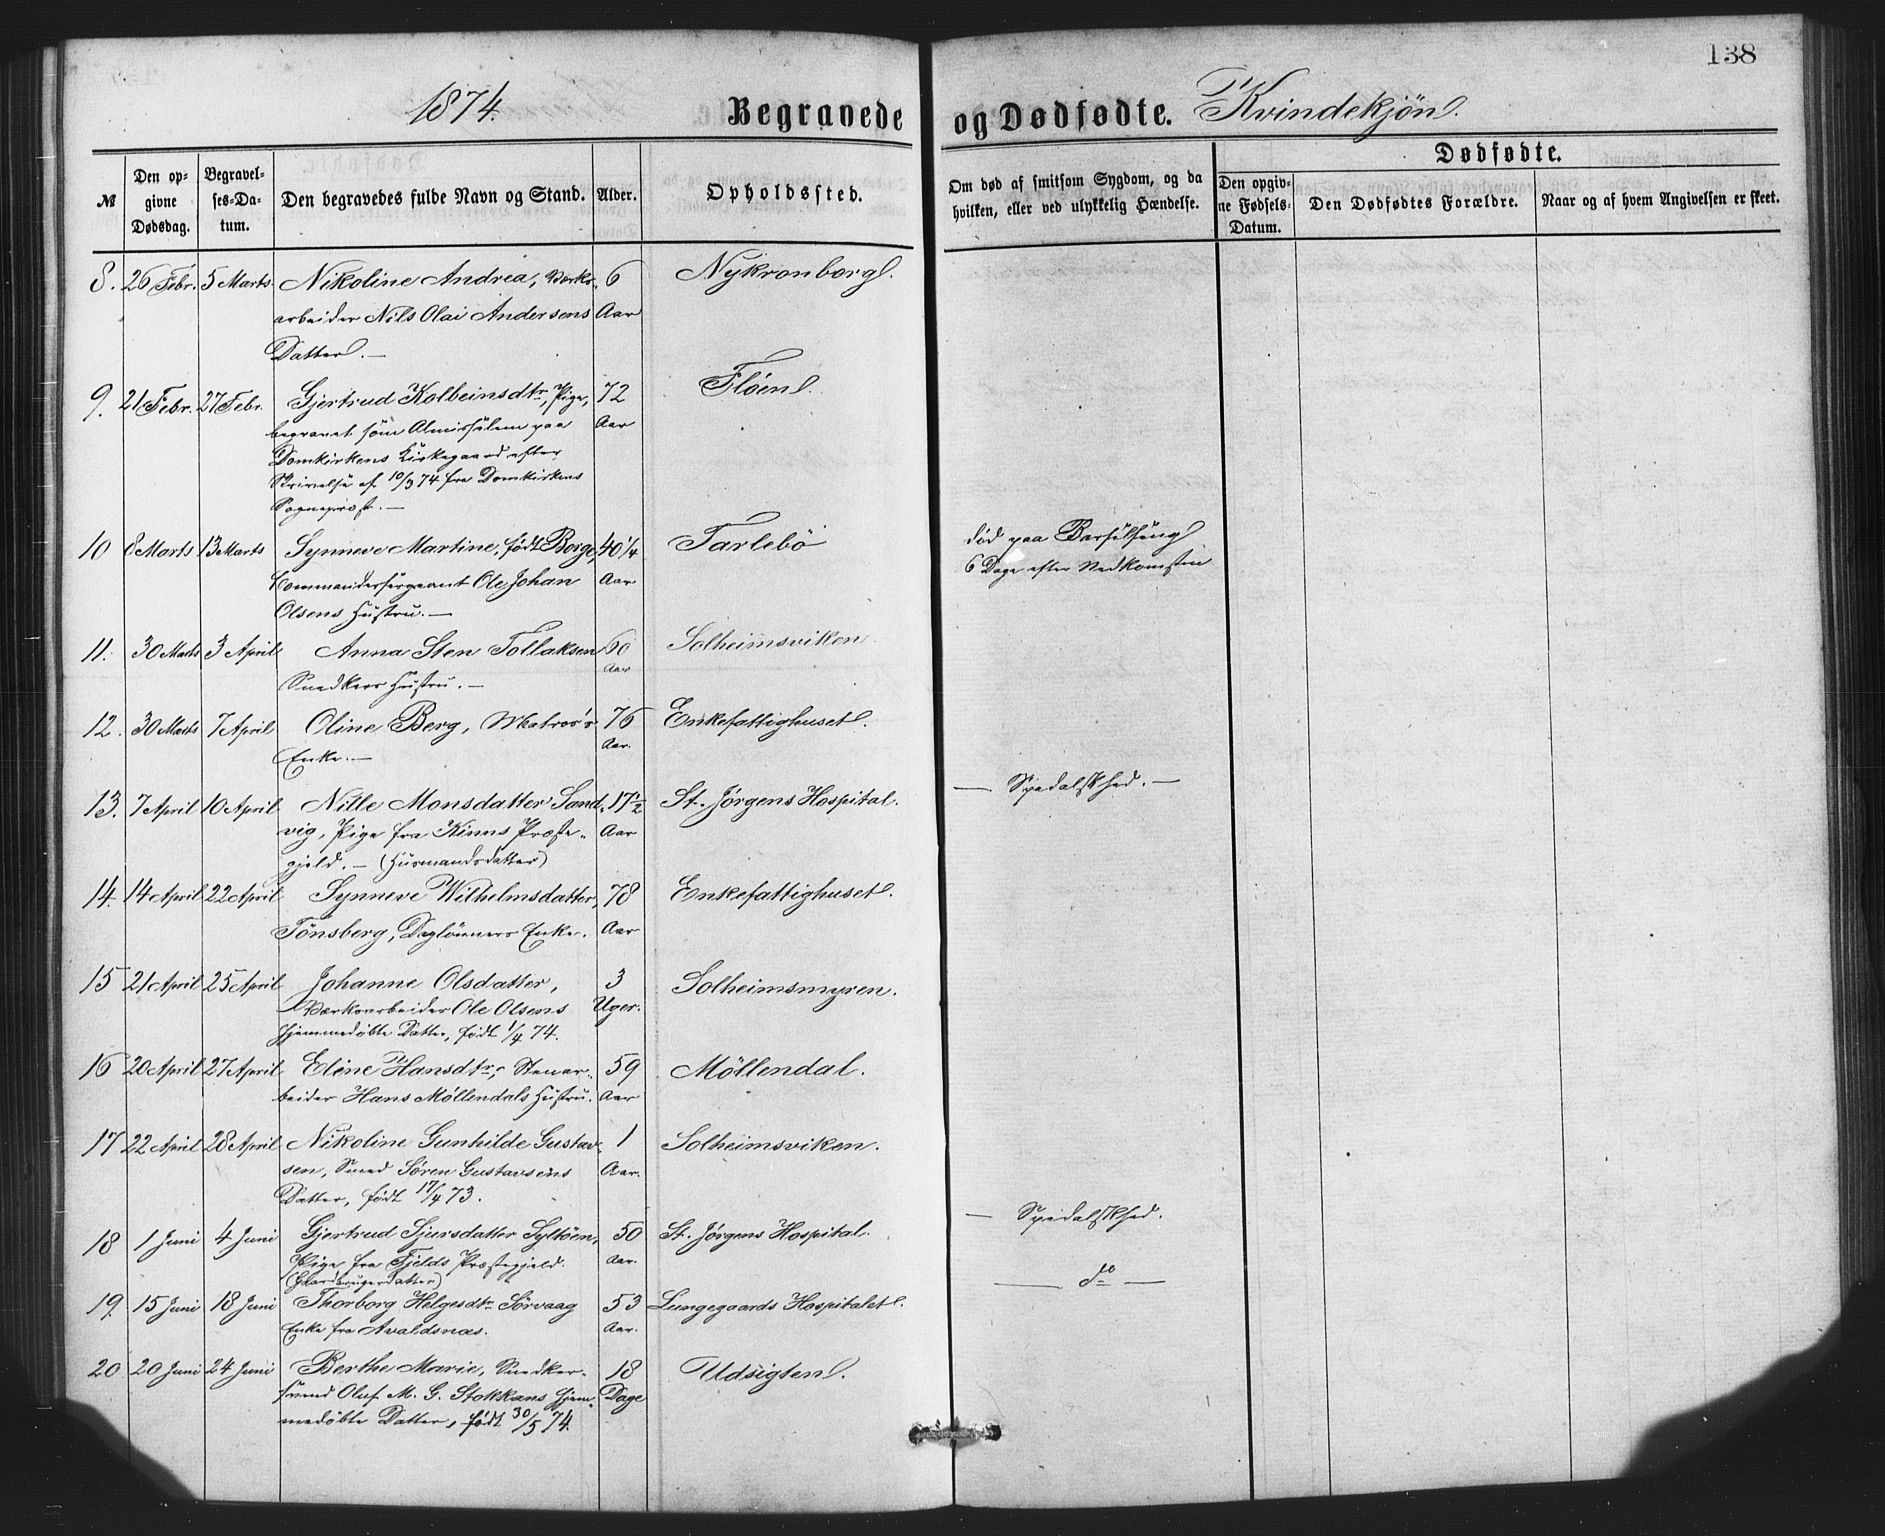 138
1874. Begravede og Dødfødte. Kvindekjön.
№
Den opgivne Dødsdag.
Begravelses-Datum.
Den begravedes fulde Navn og Stand.
Alder.
Opholdssted.
Om død af smitsom Sygdom, og da hvilken, eller ved ulykkelig Hændelse.
Dødfødte.
Den opgivne Fødsels-Datum.
Den Dødfødtes Forældre.
Naar og af hvem Angivelsen er skeet.
8. 26 Febr. 5 Marts. Nikoline Andrea, Værks- 6 Nykronborg.
arbeider Nils Olai Andersens Aar
Datter. —
9. 21 Febr. 27 Febr. Gjertrud Kolbeinsdtr, Pige, 72 Fløen.
begravet som Almisselem paa Aar
Domkirkens Kirkegaard efter
Skrivelse af 10/3 74 fra Domkirkens
Sogneprest. —
10 8 Marts 13 Marts Synneve Martine, født Borge, 40 1/4 Tarlebö død paa Barselseng
Commandersergeant Ole Johan Aar 6 Dage efter Nedkomsten
Olsens Hustru. —
11. 30 Marts 3 April Anna Sten Tollaksen 60 Solheimsviken
Snedkers Hustru. — Aar
12. 30 Marts 7 April Oline Berg, Matros's 76 Enkefattighuset.
Enke. — Aar.
13. 7 April 10 April Nille Monsdatter Sand- 17 1/2 St. Jörgens Hospital. — Spedalskhed. —
vig, Pige fra Kinns Præste- Aar
gjeld. — (Husmandsdatter)
14. 14 April 22 April Synneve Wilhelmsdatter, 78 Enkefattighuset.
Tönsberg, Daglönners Enke. Aar
15 21 April 25 April Johanne Olsdatter, 3 Solheimsmyren.
Værksarbeider Ole Olsens Uger.
hjemmedöbte Datter, født 1/4 74.
16 20 April 27 April Eline Hansdtr, Stenar- 59 Möllendal.
beider Hans Möllendals Hustru. Aar
17 22 April 28 April Nikoline Gunhilde Gustav- 1 Solheimsviken.
sen, Smed Sören Gustavsens Aar.
Datter, født 17/4 73.
18 1 Juni 4 Juni Gjertrud Sjursdatter Syltöen, 50 St. Jörgens Hospital. — Spedalskhed.
Pige fra Fjelds Præstegjeld. Aar.
(Gaardbrugerdatter)
19. 15 Juni 18 Juni Thorborg Helgesdtr Sörvaag 53 Lungegaards Hospitalet. — do —
Enke fra Avaldsnæs. Aar.
20 20 Juni 24 Juni Berthe Marie, Snedker- 18 Udsigten.
svend Oluf M. G. Stokkans hjem- Dage
medöbte Datter, født 30/5 74.